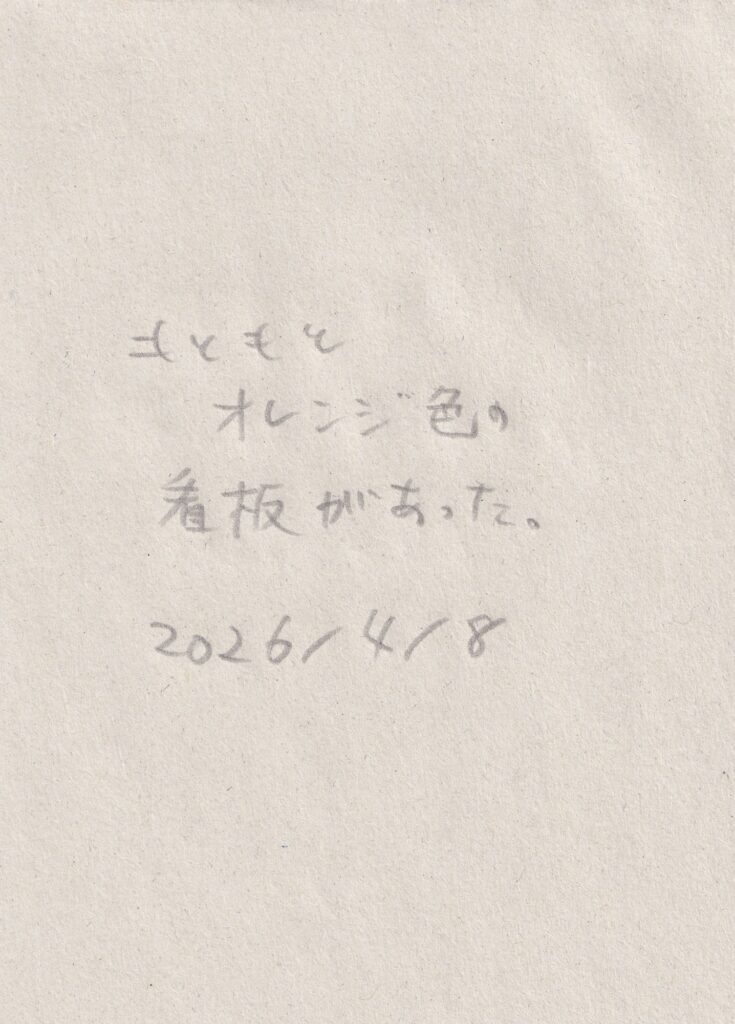 もともと
オレンジ色の
看板があった。
2026/4/8